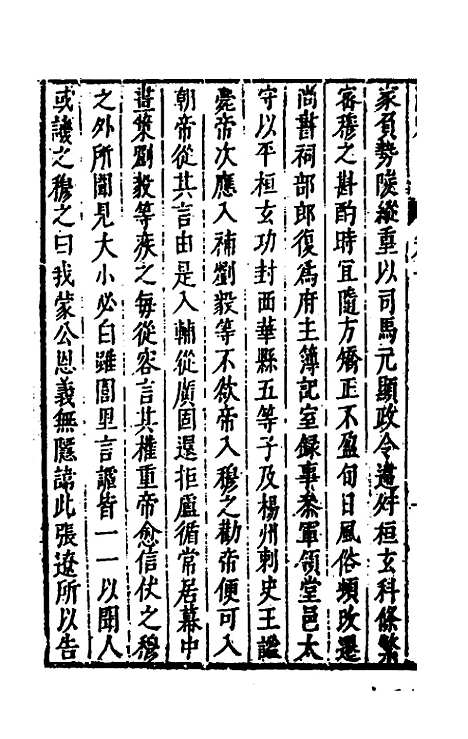 家負勢陵縱重以司馬元顯政令違舛桓玄科條繁
密穆之斟酌時宜隨方矯正不盈旬日風俗頻改遷
尚書祠部郎復爲府主簿記室録事叅軍領堂邑太
守以平桓玄功封西華縣五等子及楊州刺史王謐
薨帝次應入補劉毅等不欲帝入穆之勸帝便可入
朝帝從其言由是入輔從廣固還拒盧循常居幕中
畫策劉毅等疾之每從容言其權重帝愈信伏之穆
之外所聞見大小必白雖閭里言謳皆一一以聞人
或譏之穆之曰我蒙公恩義無隱諱此張遼所以告